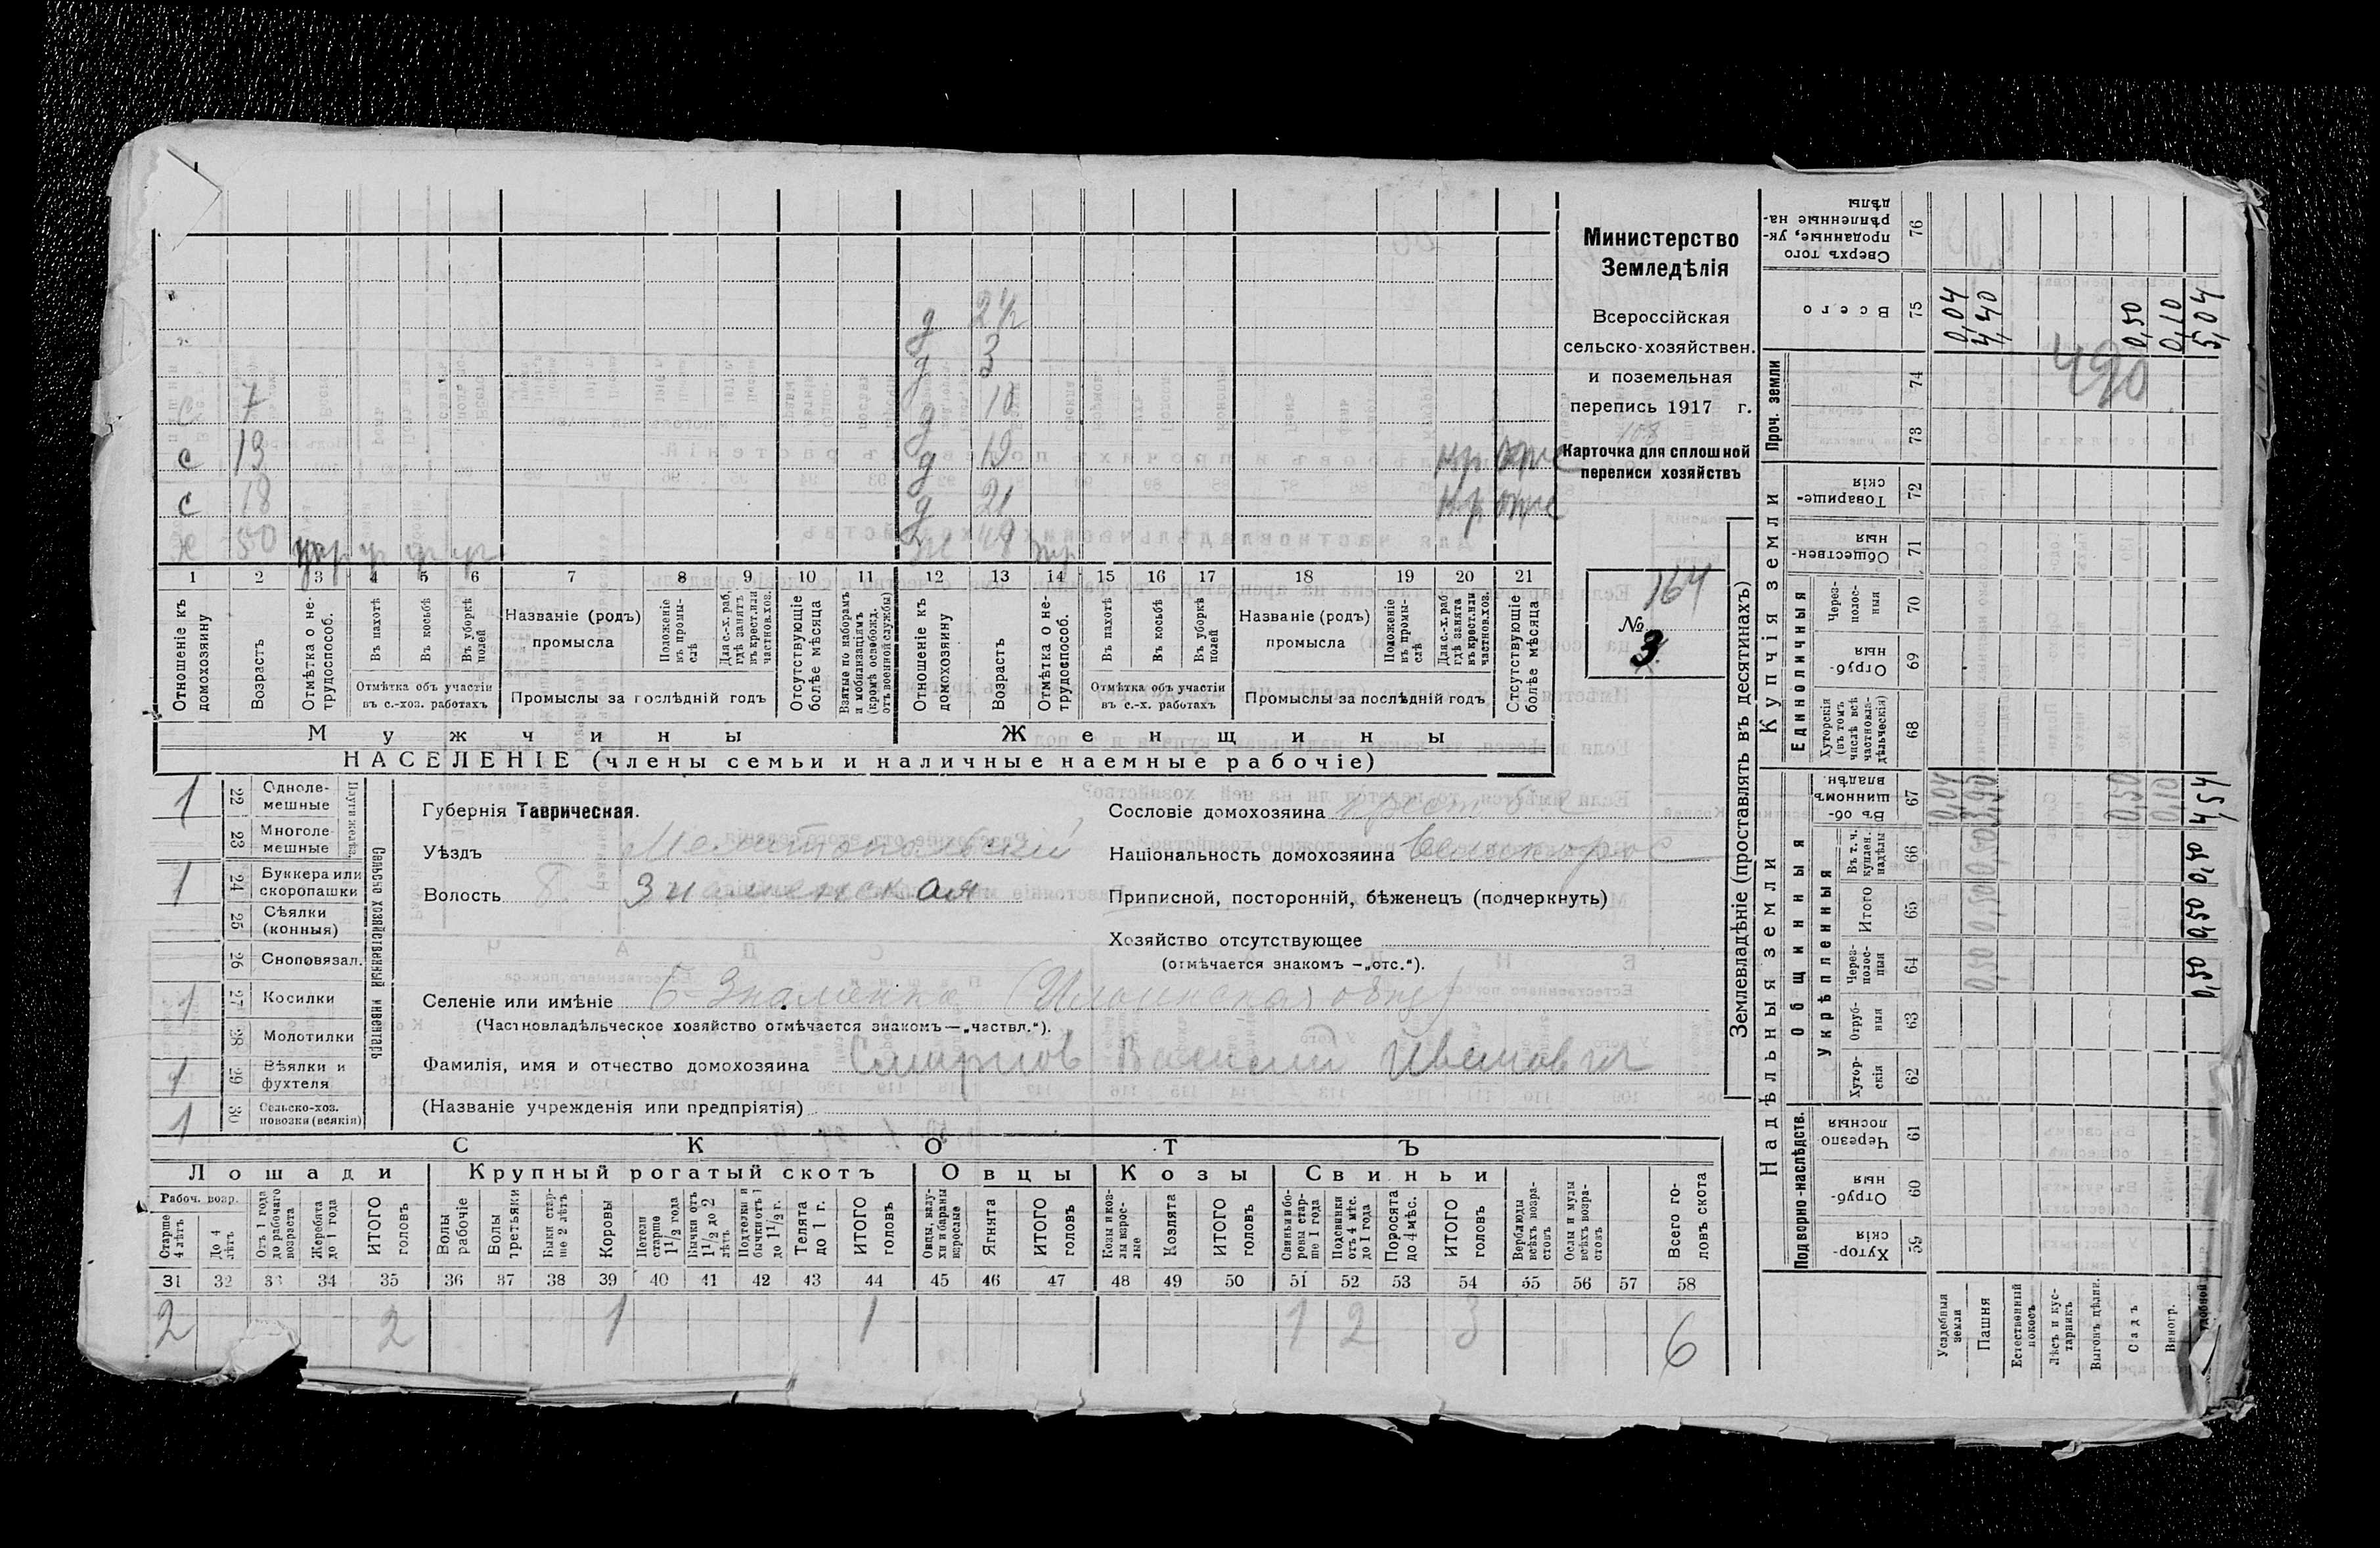 д 2½
д 3
с 7 д 10
с 13 д 19 кр отс
с 18 д 21 кр отс
х 50 ж 48
1 2 3 4 5 6 7 8 9 10 11 12 13 14 15 16 17 18 19 20 21
Отношеніе къ домохозяину
Возрастъ
Отмѣтка о не-
трудоспособ.
Въ пахотѣ
Въ косьбѣ
Въ уборкѣ полей
Отмѣтка объ участіи
въ с.-хоз. работахъ
Названіе (родъ)
промысла
Положеніе въ промы-
слѣ
Для с.-х. раб. гдѣ занятъ въ крест. или частнов. хоз.
Промыслы за послѣдній годъ
Отсутствующіе болѣе мѣсяца
Взятые по наборамъ и мобилизаціямъ (кромѣ освобожд. отъ военной службы)
Отношеніе къ домохозяину
Возрастъ
Отмѣтка о не-
трудоспособ.
Въ пахотѣ
Въ косьбѣ
Въ уборкѣ полей
Отмѣтка объ участіи
въ с.-х. работахъ
Названіе (родъ)
промысла
Положеніе въ промы-
слѣ
Для с.-х. раб гдѣ занята въ крест. или частнов. хоз.
Промыслы за послѣдній годъ
Отсутствующіе болѣе мѣсяца
Мужчины
Женщины
НАСЕЛЕНІЕ (члены семьи и наличные наемные рабочіе)
Министерство
Земледѣлія
Всероссійская
сельско-хозяйствен.
и поземельная
перепись 1917 г.
Карточка для сплошной
переписи хозяйствъ
164
№
3
1 22 Одноле-
мешные
23 Многоле-
мешные
1 24 Буккера или
скоропашки
25 Сѣялки
(конныя)
26 Сноповязал.
1 27 Косилки
28 Молотилки
1 29 Вѣялки и
фухтеля
1 30 Сельско-хоз.
повозки (всякія)
Плуги желѣз.
Сельско хозяйственный инвентарь
Губернія Таврическая.
Уѣздъ Мелитопольский
Волость Б. Знаменская
Сословіе домохозяина
Національность домохозяина великорос
Приписной, посторонній, бѣженецъ (подчеркнуть)
Хозяйство отсутствующее
(отмѣчается знакомъ —„отс.“).
Селеніе или имѣніе Б-Знаменка
(Частновладѣльческое хозяйство отмѣчается знакомъ—„частвл.“).
Фамилія, имя и отчество домохозяина Смирнов Василий Иванович
(Названіе учрежденія или предпріятія)
СКОТЪ
Лошади
Крупный рогатый скотъ
Овцы
Козы
Свиньи
Рабоч. возр.
Старше 4 лѣтъ
До 4 лѣтъ
Отъ 1 года до рабочаго возраста
Жеребята до 1 года
ИТОГО головъ
Волы рабочіе
Волы третьяки
Быки стар-
ше 2 лѣтъ
Коровы
Нетели старше 1½ года
Бычки отъ 1½ до 2 лѣтъ
Подтелки и бычки отъ 1 до 1½ г.
Телята до 1 г.
ИТОГО головъ
Овцы, валу-
хи и бараны взрослые
Ягнята
ИТОГО головъ
Козы и коз-
лы взрос-
лые
Козлята
ИТОГО головъ
Свиньи и бо-
ровы стар-
ше 1 года
Подсвинки отъ 4 мѣс. до 1 года
Поросята до 4 мѣс.
ИТОГО головъ
Верблюды всѣхъ возра-
стовъ
Ослы и мулы всѣхъ возра-
стовъ
Всего го-
ловъ скота
31 32 33 34 35 36 37 38 39 40 41 42 43 44 45 46 47 48 49 50 51 52 53 54 55 56 57 58
2 2 1 1 1 2 3 6
Землевладѣніе (проставлять въ десятинахъ)
Надѣльныя земли
Купчія земли
Проч. земли
Подворно-наслѣдств.
Общинныя
Укрѣпленныя
Единоличныя
Сверхъ того проданные, ук-
рѣпленные на-
дѣлы 76
Всего 75
74
73
Товарище-
скія 72
Обществен-
ныя 71
Через-
полос-
ныя 70
Отруб-
ныя 69
Хуторскія (въ томъ числѣ всѣ частновла-
дѣльческія) 68
Въ об-
щинномъ владѣн. 67
Въ т. ч. куплен. надѣлы 66
Итого 65
Через-
полос-
ныя 64
Отруб-
ныя 63
Хутор-
скія 62
Черезпо
лосныя 61
Отруб-
ныя 60
Хутор-
скія 59
Усадебныя земли 0,04 0,04
Пашня 0,50 0,50 0,50 3,90 4,40
Естественный покосъ
Лѣсъ и кус-
тарникъ
490
Выгонъ дѣлин.
Садъ 0,50 0,50
Виногр. 0,10 0,10
удобной 0,50 0,50 0,50 4,54 5,04